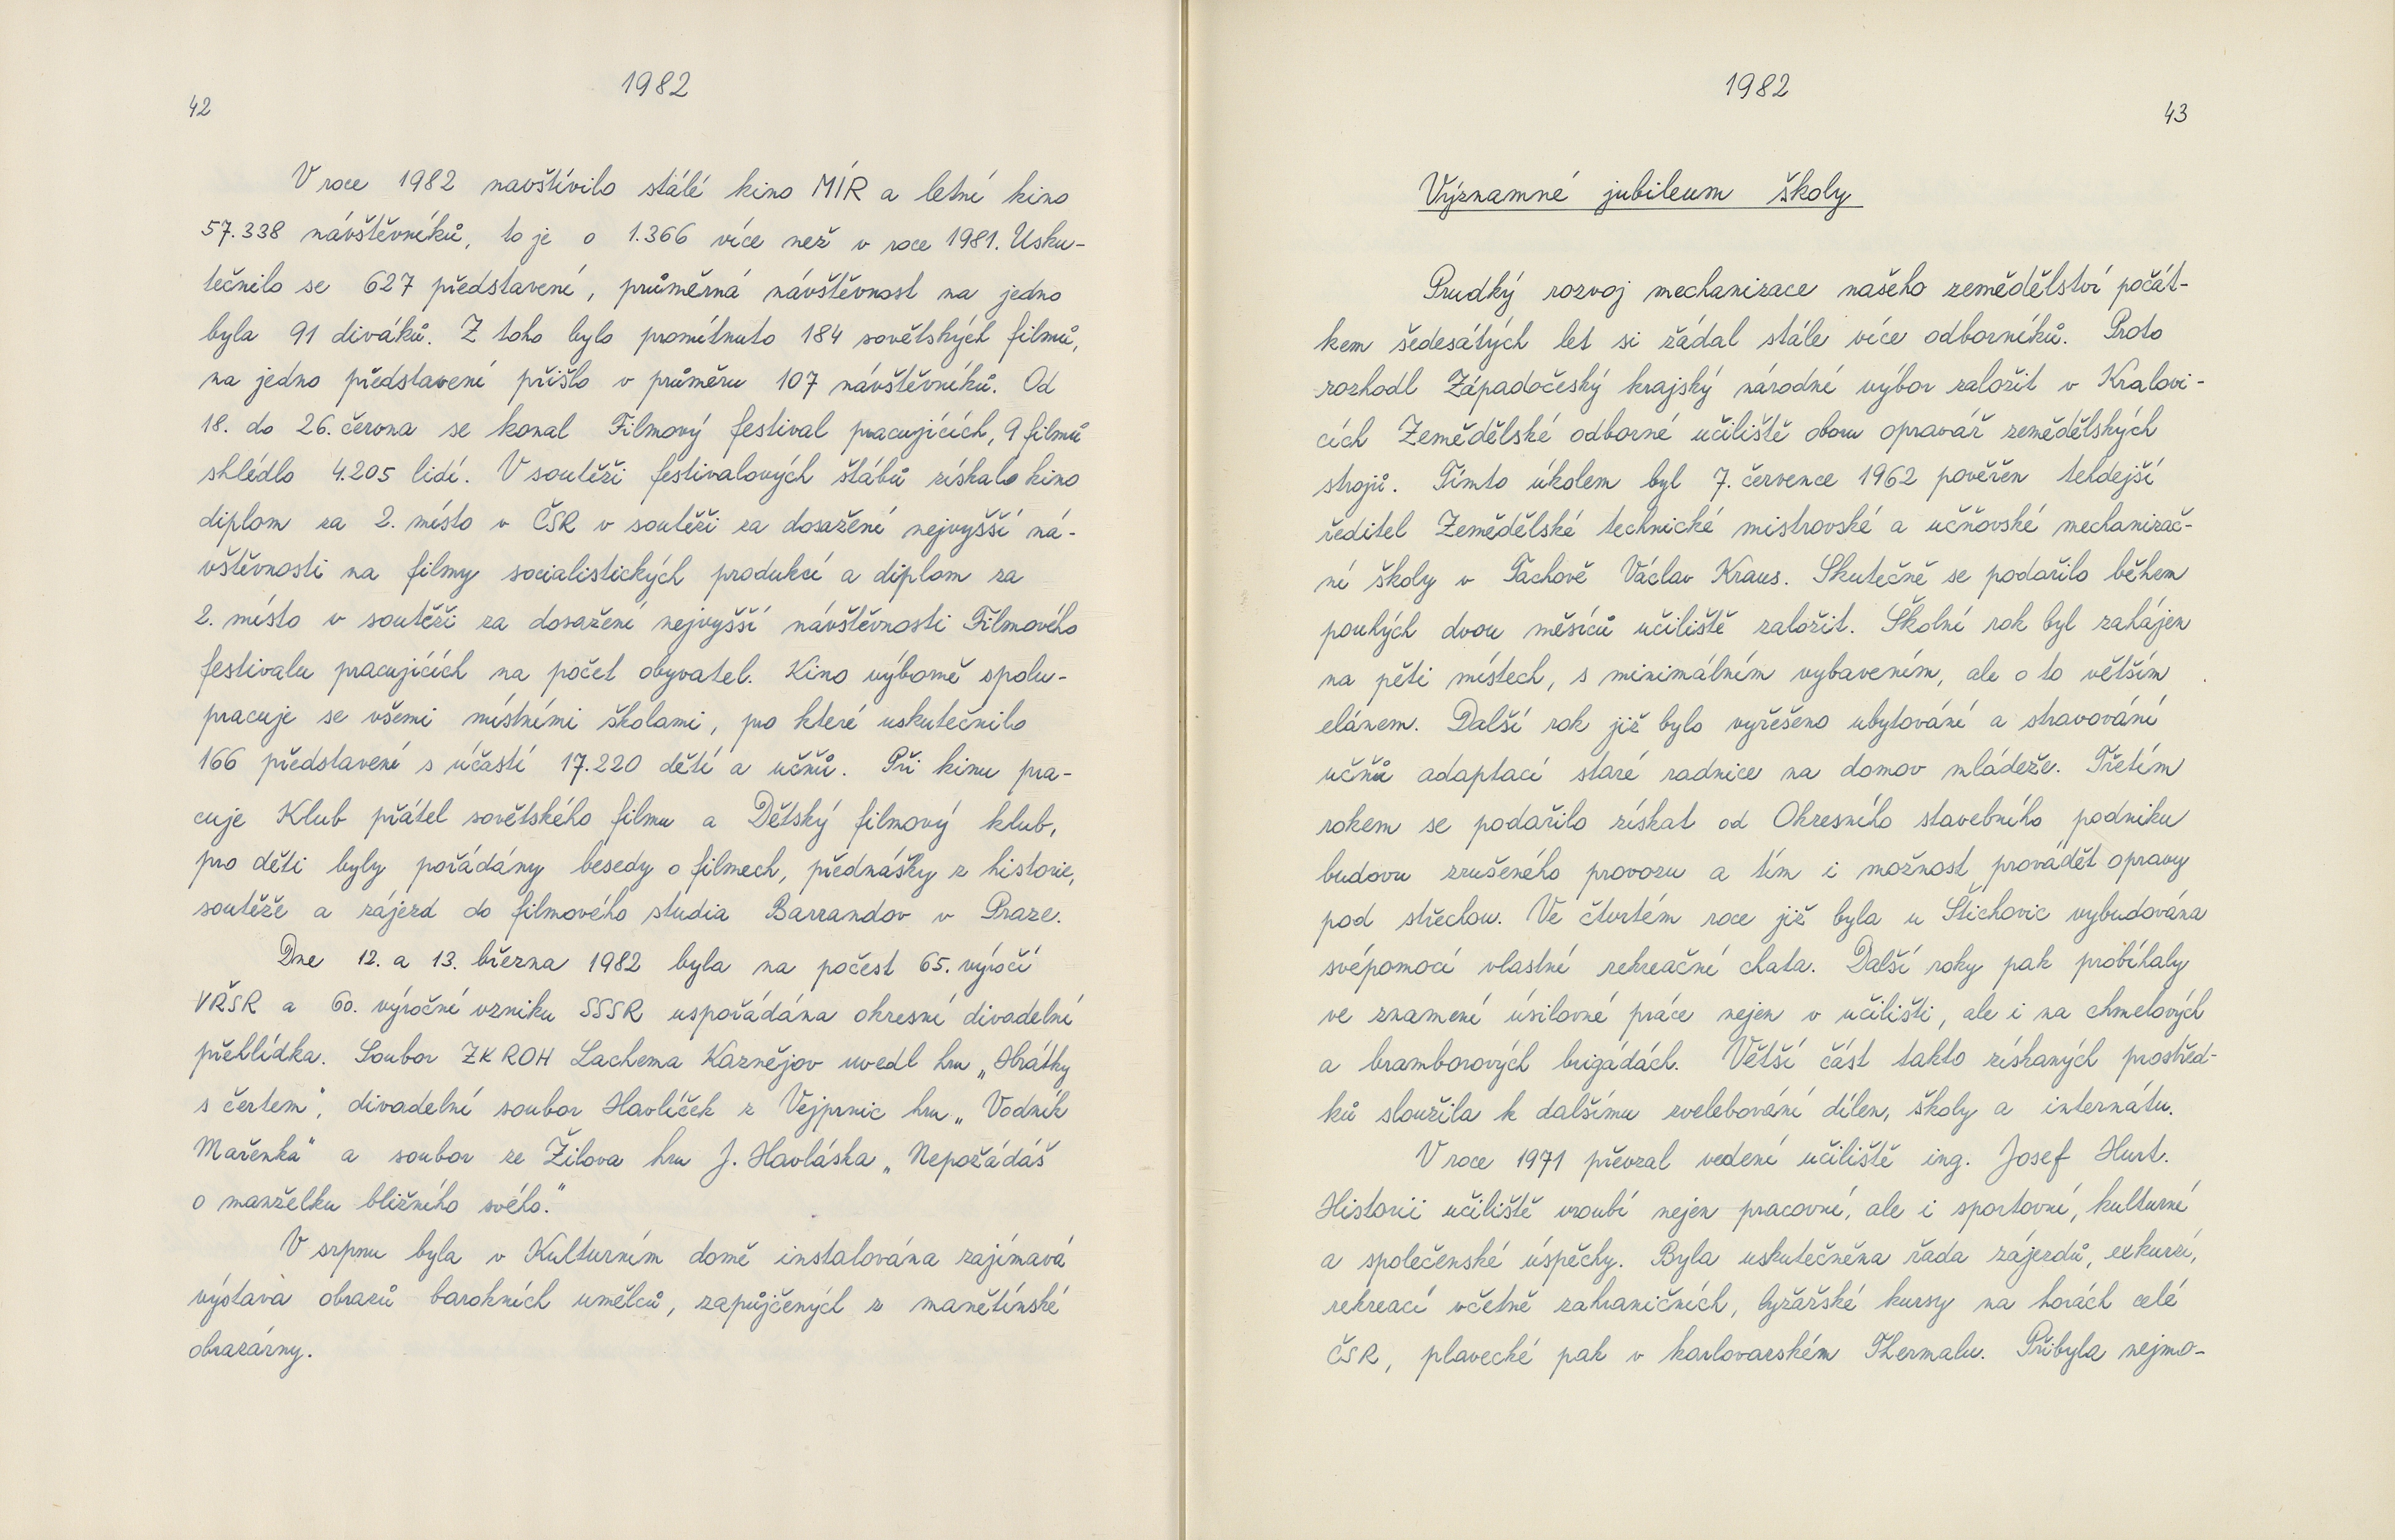 1982
42
V roce 1982 navštívilo stálé kino MÍR a letní kino
57.338 návštěvníků, to je o 1.366 více než v roce 1981. Usku-
tečnilo se 627 představení, průměrná návštěvnost na jedno
byla 91 diváků. Z toho bylo promítnuto 184 sovětských filmů,
na jedno představení přišlo v průměru 107 návštěvníků. Od
18. do 26. června se konal Filmový festival pracujících, 9 filmů
shlédlo 4.205 lidí. V soutěži festivalových štábů získalo kino
diplom za 2. místo v ČSR v soutěži za dosažení nejvyšší ná-
vštěvnosti na filmy socialistických produkcí a diplom za
2. místo v soutěži za dosažení nejvyšší návštěvnosti Filmového
festivalu pracujících na počet obyvatel. Kino výborně spolu-
pracuje se všemi místními školami, pro které uskutečnilo
166 představení s účastí 17.220 dětí a učňů. Při kinu pra-
cuje Klub přátel sovětského filmu a Dětský filmový klub,
pro děti byly pořádány besedy o filmech, přednášky z historie,
soutěže a zájezd do filmového studia Barrandov v Praze.
Dne 12. a 13. března 1982 byla na počest 65. výročí
VŘSR a 60. výroční vzniku SSSR uspořádána okresní divadelní
přehlídka. Soubor ZK ROH Lachema Kaznějov uvedl hru „Hrátky
s čertem", divadelní soubor Havlíček z Vejprnic hru „Vodník
Mařenka" a soubor ze Žilova hru J. Havláska „Nepožádáš
o manželku bližního svého."
V srpnu byla v Kulturním domě instalována zajímavá
výstava obrazů barokních umělců, zapůjčených z manětínské
obrazárny.
1982
43
Významné jubileum školy
Prudký rozvoj mechanizace našeho zemědělství počát-
kem šedesátých let si žádal stále více odborníků. Proto
rozhodl Západočeský krajský národní výbor založit v Kralovi-
cích Zemědělské odborné učiliště oboru opravář zemědělských
strojů. Tímto úkolem byl 7. července 1962 pověřen tehdejší
ředitel Zemědělské technické mistrovské a učňovské mechanizač-
ní školy v Tachově Václav Kraus. Skutečně se podařilo během
pouhých dvou měsíců učiliště založit. Školní rok byl zahájen
na pěti místech, s minimálním vybavením, ale o to větším
elánem. Další rok již bylo vyřešeno ubytování a stravování
učňů adaptací staré radnice na domov mládeže. Třetím
rokem se podařilo získat od Okresního stavebního podniku
budovu zrušeného provozu a tím i možnost provádět opravy
pod střechou. Ve čtvrtém roce již byla u Štichovic vybudována
svépomocí vlastní rekreační chata. Další roky pak probíhaly
ve znamení úsilovné práce nejen v učilišti, ale i na chmelových
a bramborových brigádách. Větší část takto získaných prostřed-
ků sloužila k dalšímu zvelebování dílen, školy a internátu.
V roce 1971 převzal vedení učiliště ing. Josef Hurt.
Historii učiliště vroubí nejen pracovní, ale i sportovní, kulturní
a společenské úspěchy. Byla uskutečněna řada zájezdů, exkurzí,
rekreací včetně zahraničních, lyžařské kursy na horách celé
ČSR, plavecké pak v karlovarském Thermalu. Přibyla nejmo-